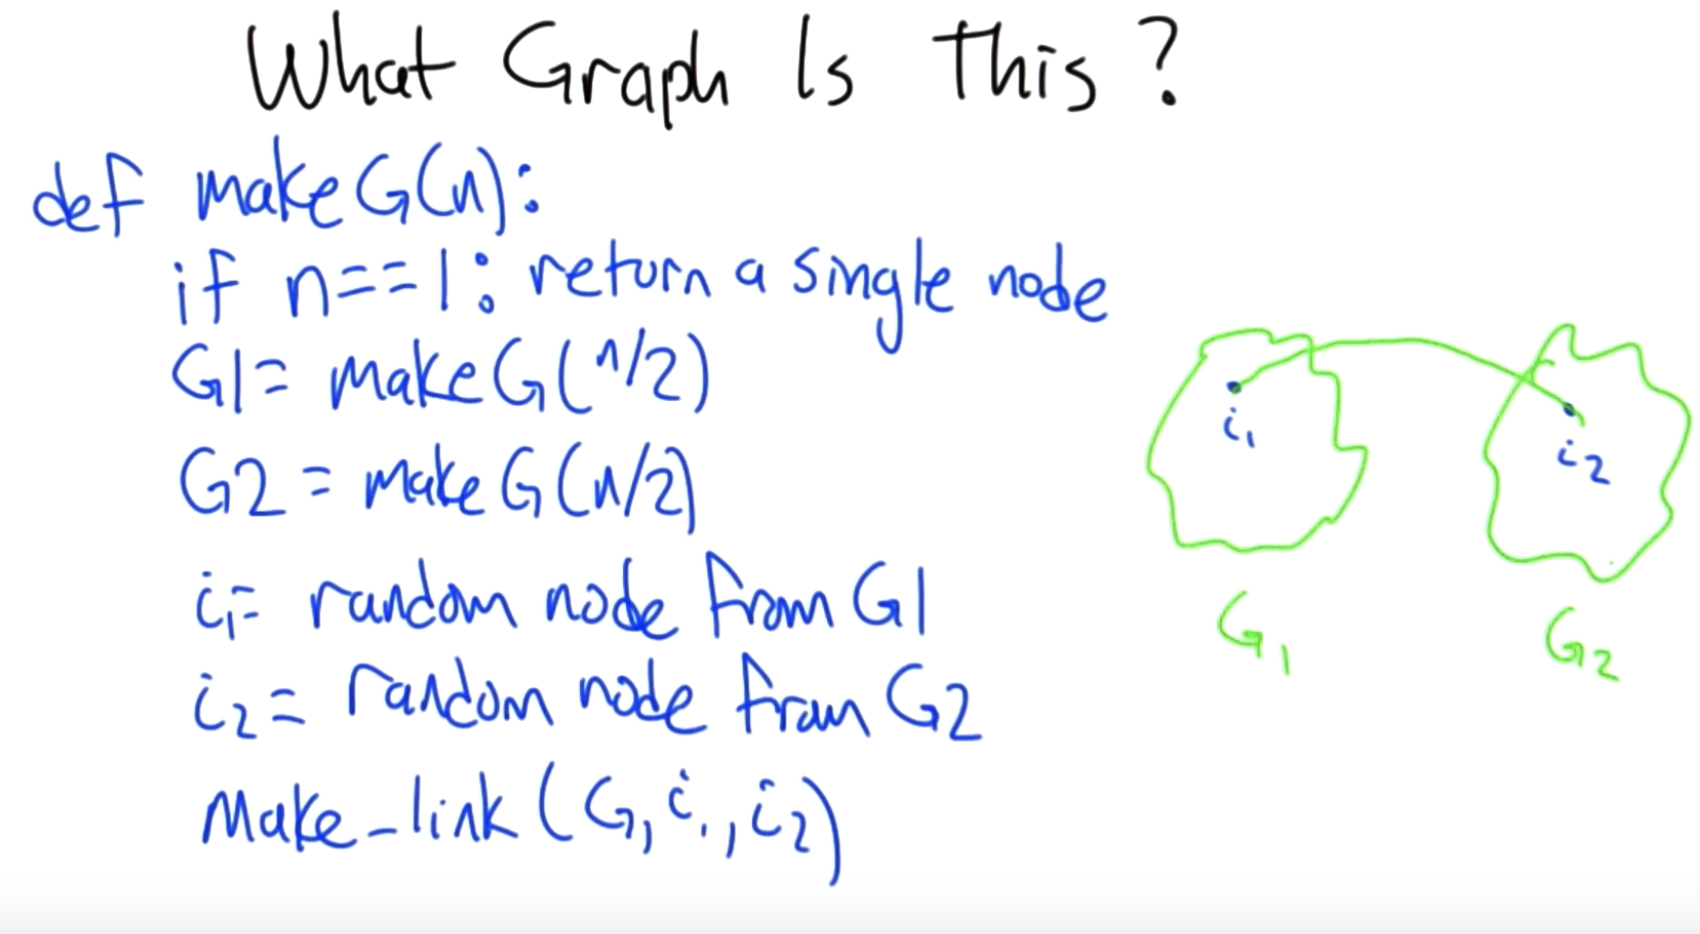 What Graph Is This?
def makeG(n):
if n==1: return a single node
G1= makeG(n/2)
G2 = makeG(n/2)
i₁= random node from G1
i₂= random node from G2
Make_link(G,i₁,i₂)
i₁
i₂
G₁
G₂